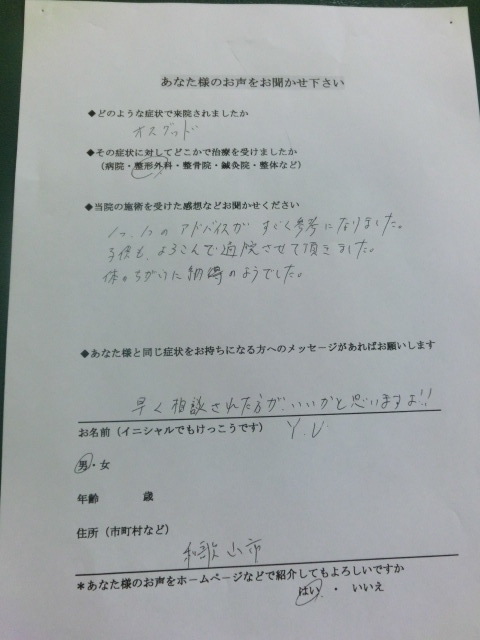 あなた様のお声をお聞かせ下さい
◆どのような症状で来院されましたか
オスグッド
◆その症状に対してどこかで治療を受けましたか
(病院・整形外科・整骨院・鍼灸院・整体など)
◆当院の施術を受けた感想などお聞かせください
1つ、1つのアドバイスがすごく参考になりました。
子供も、よろこんで通院させて頂きました。
体のちがいに納得のようでした。
◆あなた様と同じ症状をお持ちになる方へのメッセージがあればお願いします
早く相談された方が、いいかと思いますよ!!
お名前(イニシャルでもけっこうです) Y.U
男・女
年齢 歳
住所(市町村など)
和歌山市
*あなた様のお声をホームページなどで紹介してもよろしいですか
はい・いいえ